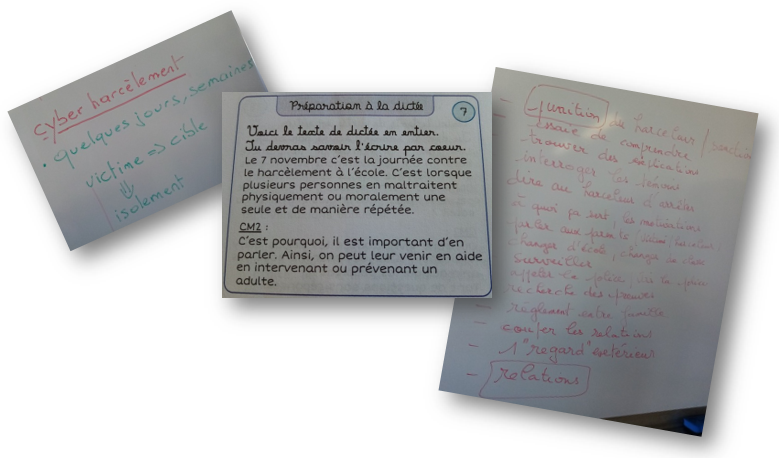 cyber harcèlement
• quelques jours, semaines
victime => cible
⇓
isolement
Préparation à la dictée
7
Voici le texte de dictée en entier.
Tu devras savoir l'écrire par coeur.
Le 7 novembre c'est la journée contre
le harcèlement à l'école. C'est lorsque
plusieurs personnes en maltraitent
physiquement ou moralement une
seule et de manière répétée.
CM2 :
C'est pourquoi, il est important d'en
parler. Ainsi, on peut leur venir en aide
en intervenant ou prévenant un
adulte.
- punition du harceleur / sanction
essaie de comprendre
trouver des explications
interroger les témoins
dire au harceleur d'arrêter
à quoi ça sert, les motivations
parler aux parents
changer d'école, changer de classe
surveiller
appeler la police
recherche des preuves
- règlement entre famille
- couper les relations
- 1 "regard" extérieur
- relations